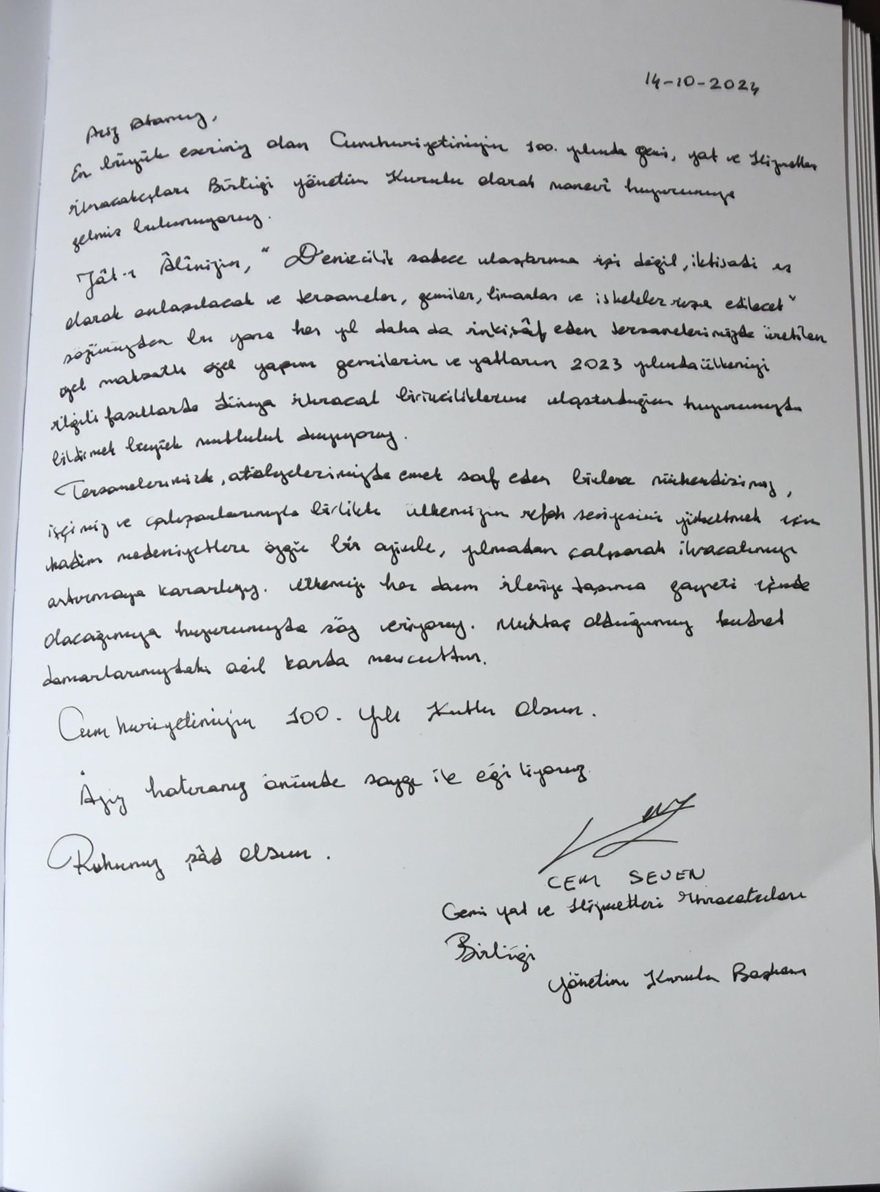 14-10-2024
Aziz Atamız,
En büyük eseriniz olan Cumhuriyetimizin 100. yılında gemi, yat ve Hizmetleri
ihracatçıları Birliği yönetim Kurulu olarak manevi huzurunuza
gelmiş bulunuyoruz.
Zât-ı Âlinizin, " Denizcilik sadece ulaştırma işi değil, iktisadi iş
olarak anlaşılacak ve tersaneler, gemiler, limanlar ve iskeleler inşa edilecek"
sözünüzden bu yana her yıl daha da inkişâf eden tersanelerimizde üretilen
özel maksatlı özel yapım gemilerin ve yatların 2023 yılında ülkemizi
ilgili fasıllarda Dünya ihracat birinciliklerine ulaştırdığını huzurunuzda
bildirmek büyük mutluluk duyuyoruz.
Tersanelerimizde, atölyelerimizde emek sarf eden binlerce mühendisimiz,
işçimiz ve çalışanlarımızla birlikte ülkemizin refah seviyesini yükseltmek için
kadim medeniyetlere özgü bir azimle, yılmadan çalışarak ihracatımızı
artırmaya kararlıyız. Ülkemizi her daim ileriye taşıma gayreti içinde
olacağımıza huzurunuzda söz veriyoruz. Muhtaç olduğumuz kudret
damarlarımızdaki asil kanda mevcuttur.
Cumhuriyetimizin 100. yılı Kutlu Olsun.
Aziz hatıranız önünde saygı ile eğiliyoruz
Ruhunuz şâd olsun.
CEM SEVEN
Gemi yat ve Hizmetleri İhracatçıları
Birliği
Yönetim Kurulu Başkanı